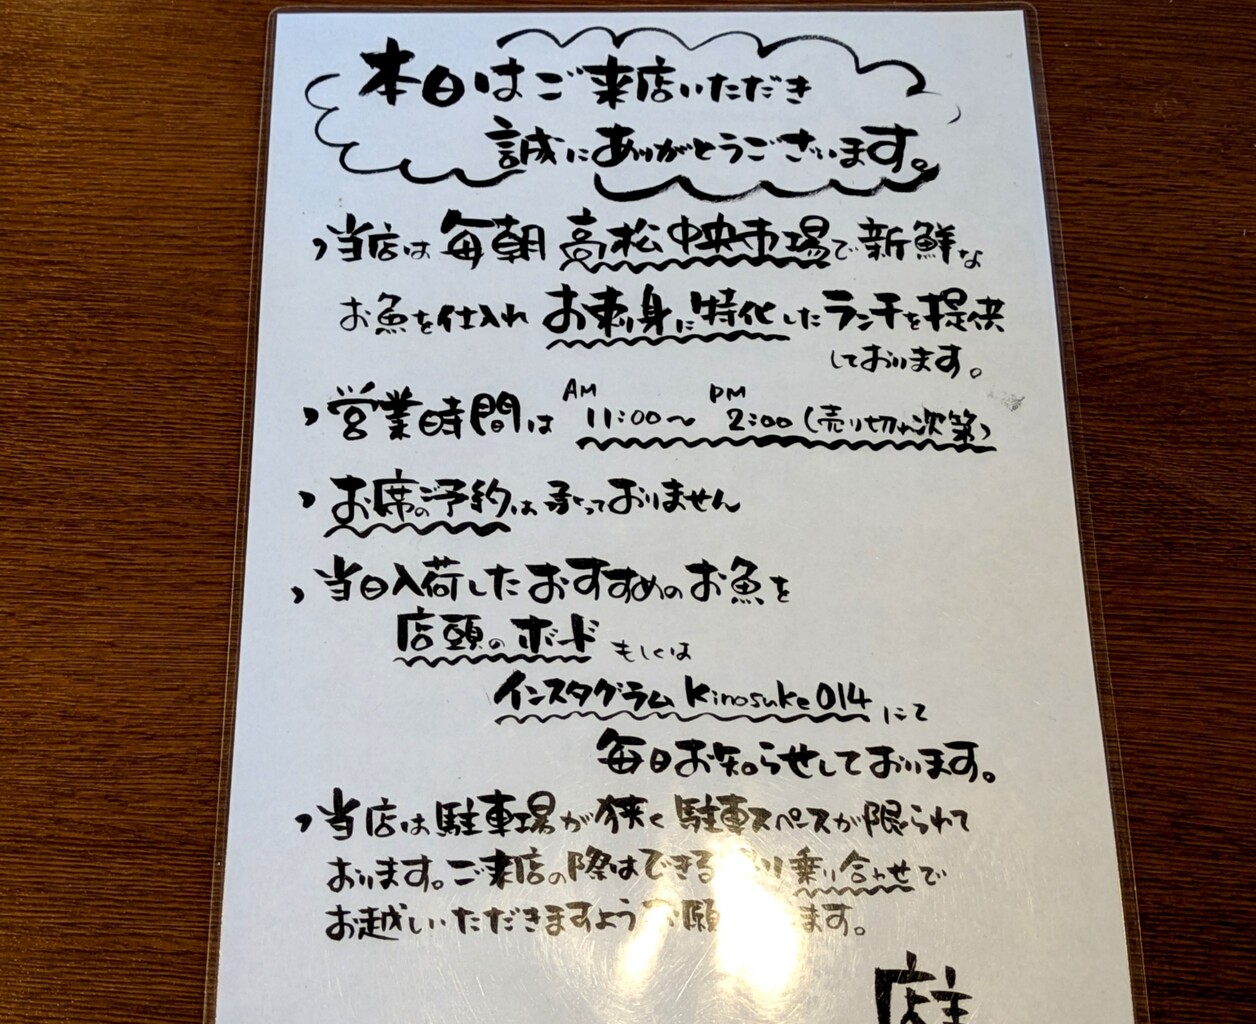 本日はご来店いただき
誠にありがとうございます。
、当店は毎朝高松中央市場で新鮮な
お魚を仕入れお刺身に特化したランチを提供
しております。
、営業時間は AM 11:00〜 PM 2:00(売り切れ次第)
、お席のご予約は承っておりません
、当日入荷したおすすめのお魚を
店頭のボード もしくは
インスタグラム kinosuke014 にて
毎日お知らせしております。
、当店は駐車場が狭く駐車スペースが限られて
おります。ご来店の際はできる り乗り合わせで
お越しいただきますよう 願 ます。
店主